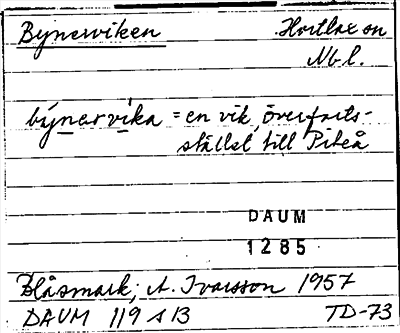 Bynerviken Hortlax sn
Nbl.
býnarvika = en vik, överfarts-
stället till Piteå
DAUM
1285
Blåsmark; A. Ivarsson 1957
DAUM 119 A B TD-73